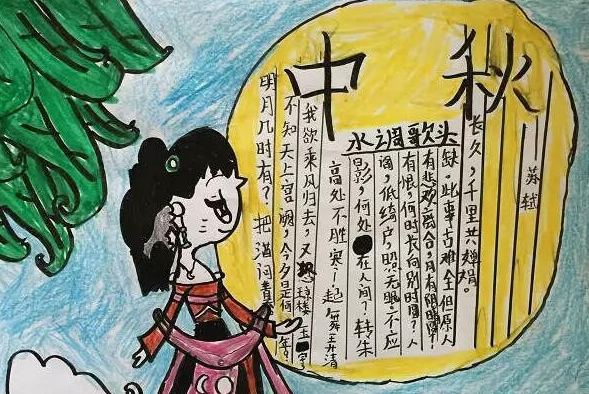 中秋
水调歌头
明月几时有？把酒问青天
不知天上宫阙，今夕是何年？
我欲乘风归去，又恐琼楼玉宇
高处不胜寒！起舞弄清
影，何处在人间？转朱
阁，低绮户，照无眠。不应
有恨，何时长向别时圆？人
有悲欢离合，月有阴晴圆
缺。此事古难全但原人
长久，千里共婵娟。
苏轼